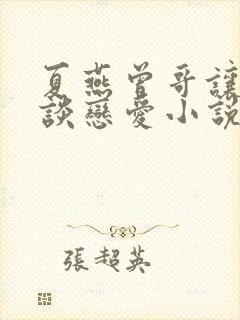 夏燕曾哥讓
談戀愛小說
張超英